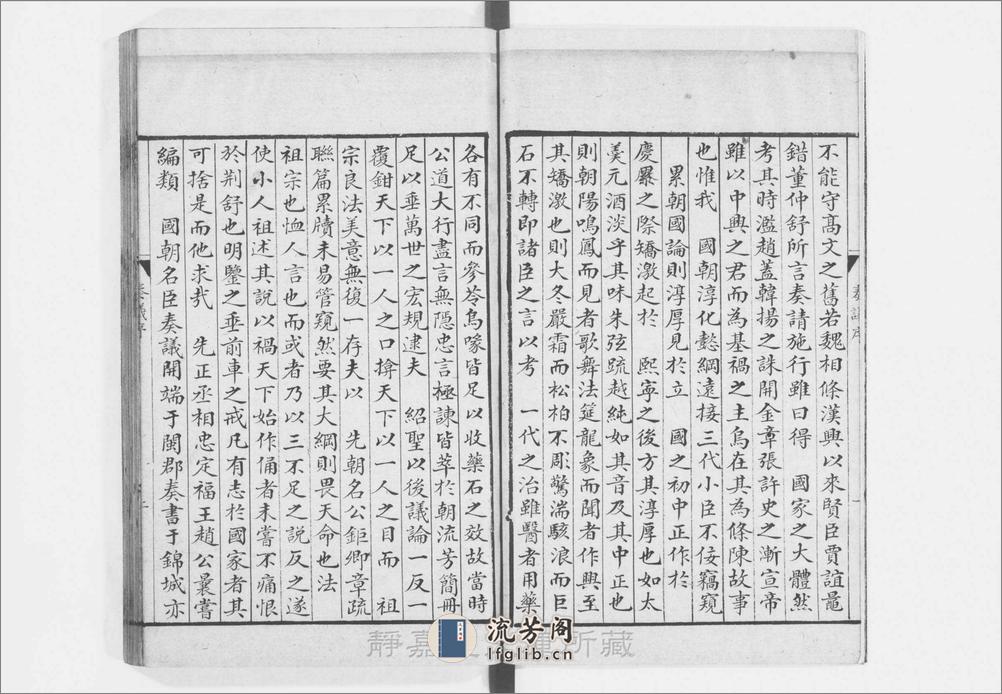 不能守高文之舊若魏相條漢興以來賢臣賈誼鼂
錯董仲舒所言奏請施行雖曰得　國家之大體然
考其時濫趙蓋韓揚之誅開金章張許史之漸宣帝
雖以中興之君而為基禍之主烏在其為條陳故事
也惟我　國朝淳化懿綱遠接三代小臣不佞竊窺
累朝國論則淳厚見於立　國之初中正作於
慶曆之際矯激起於　熙寧之後方其淳厚也如太
羹元酒淡乎其味朱弦疏越純如其音及其中正也
則朝陽鳴鳳而見者歌舞法筵龍象而聞者作興至
其矯激也則大冬嚴霜而松柏不彫驚湍駭浪而巨
石不轉即諸臣之言以考　一代之治雖醫者用藥
各有不同而參苓烏喙皆足以收藥石之效故當時
公道大行盡言無隱忠言極諫皆萃於朝流芳簡冊
足以垂萬世之宏規逮夫　紹聖以後議論一反一
覆鉗天下以一人之口揜天下以一人之目而　祖
宗良法美意無復一存夫以　先朝名公鉅卿章疏
聯篇累牘未易管窺然要其大綱則畏天命也法
祖宗也恤人言也而或者乃以三不足之說反之遂
使小人祖述其說以禍天下始作俑者未嘗不痛恨
於荆舒也明鑒之垂前車之戒凡有志於國家者其
可捨是而他求㢤　先正丞相忠定福王趙公曩嘗
編類　國朝名臣奏議開端于閩郡奏書于錦城亦
奏議序
一
流芳阁
lfglib.cn
靜嘉
所藏